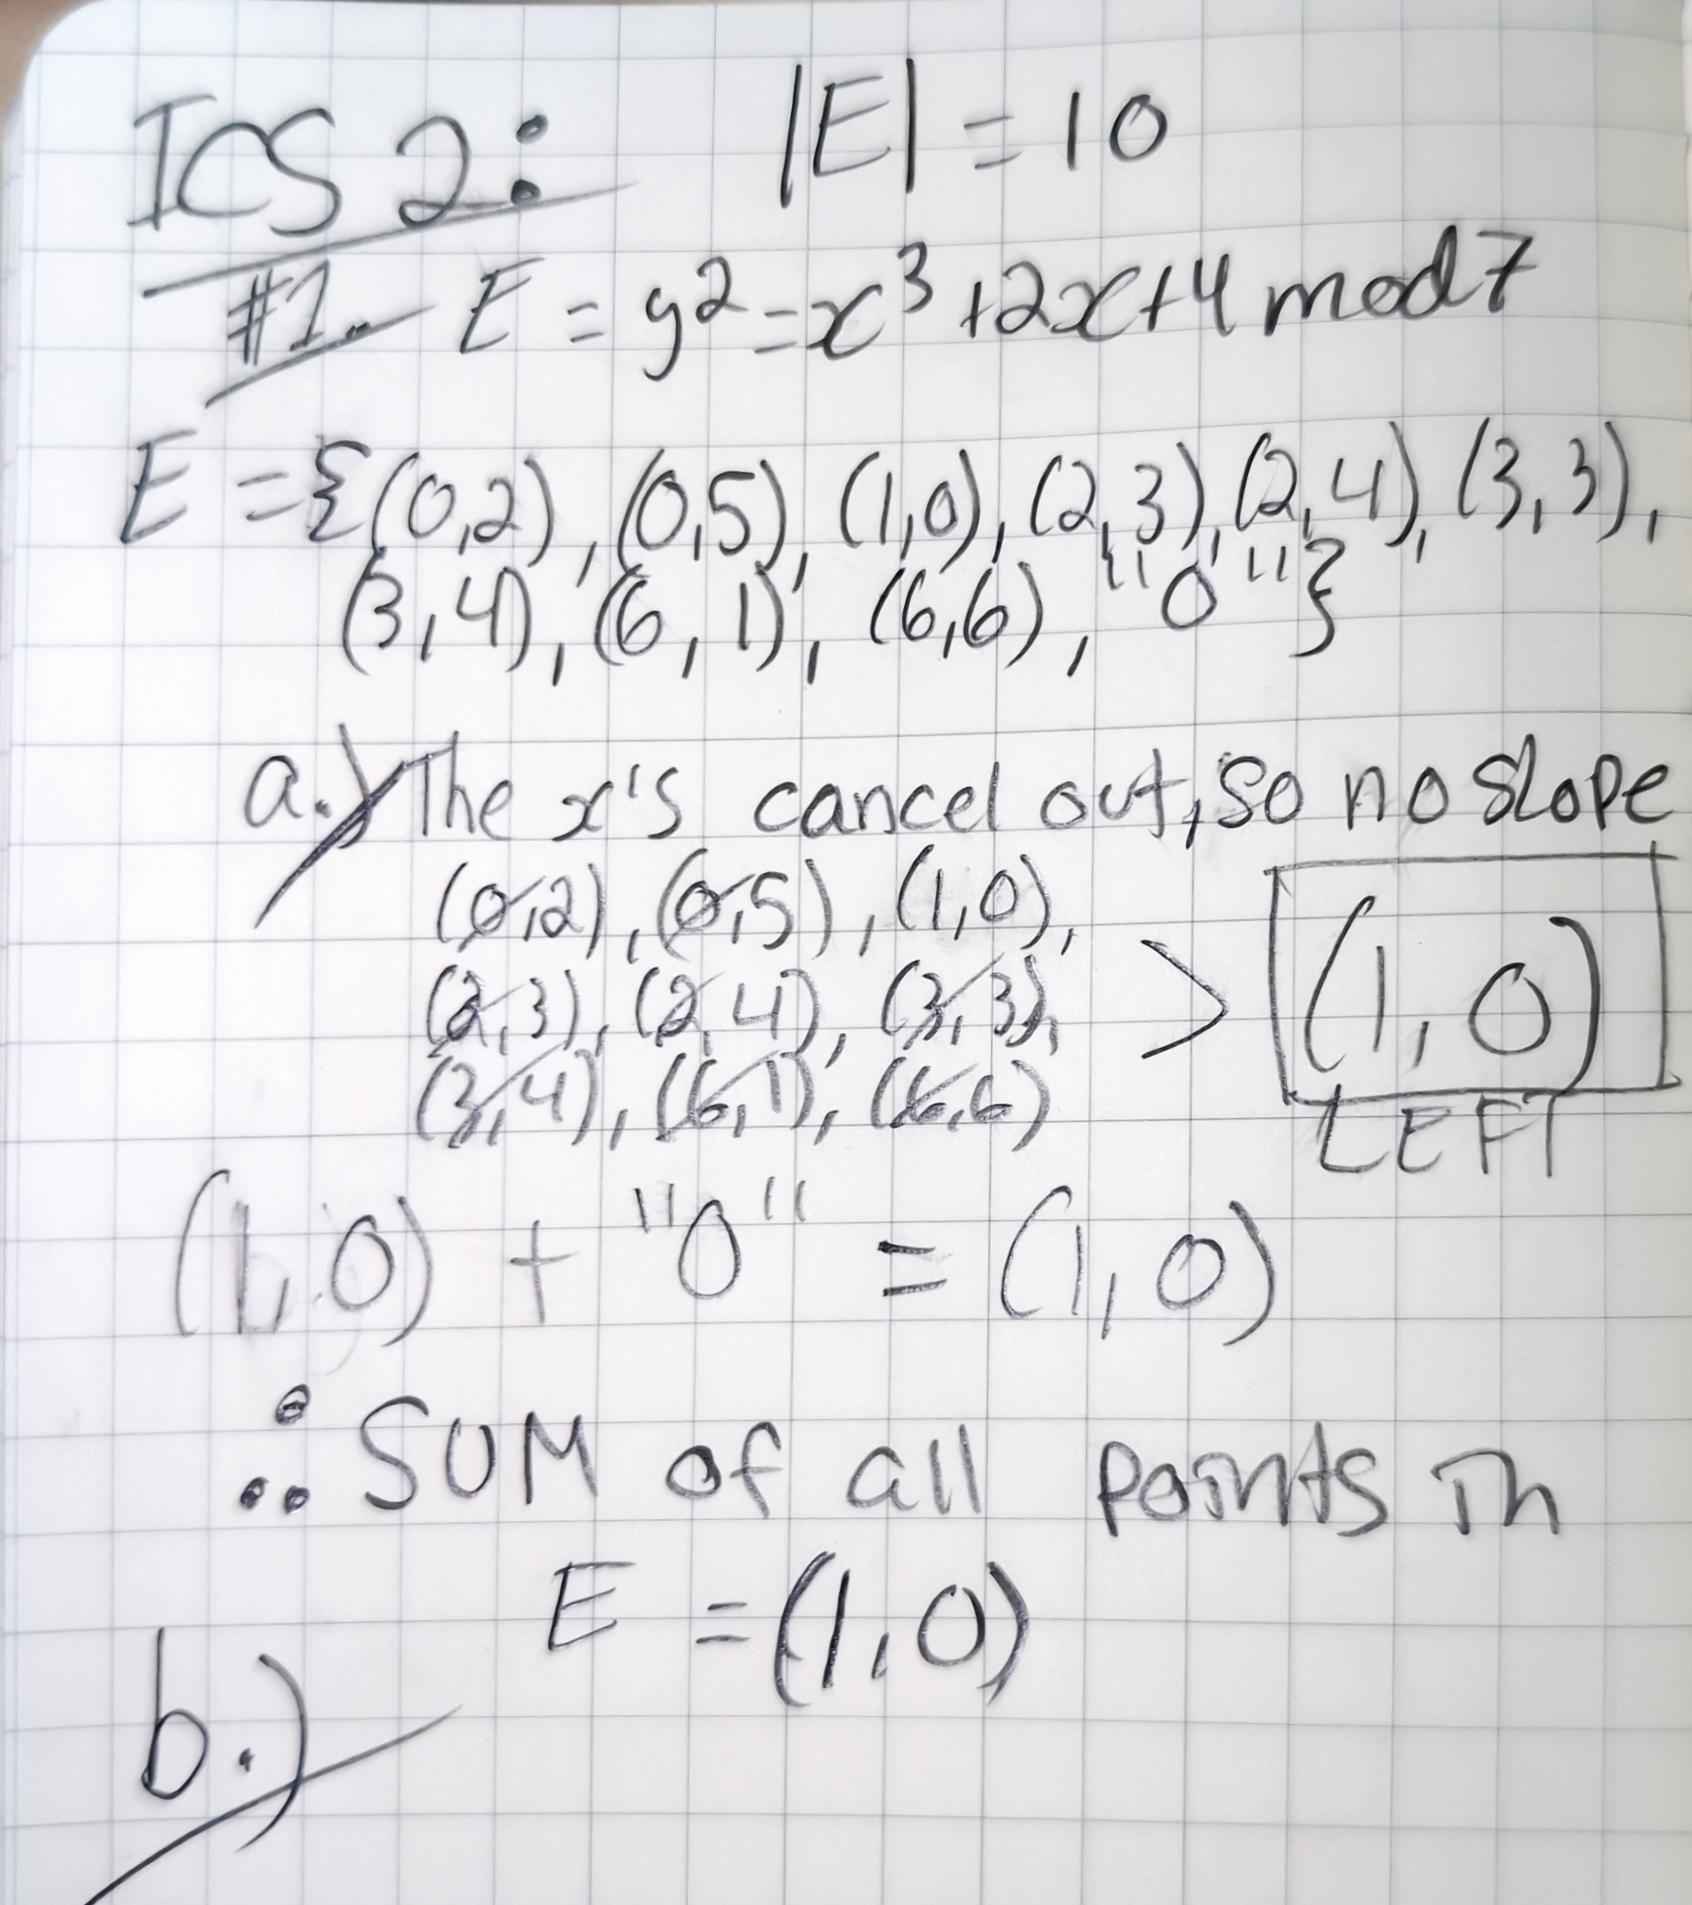 ICS 2: |E| = 10
#1. E = y² = x³ + 2x + 4 mod 7
E = {(0,2), (0,5), (1,0), (2,3), (2,4), (3,3),
(3,4), (6,1), (6,6), "0"}
a.) The x's cancel out, so no slope
(0,2), (0,5), (1,0),
(2,3), (2,4), (3,3), > (1,0)
(3,4), (6,1), (6,6) LEFT
(1,0) + "0" = (1,0)
∴ SUM of all points in
E = (1,0)
b.)